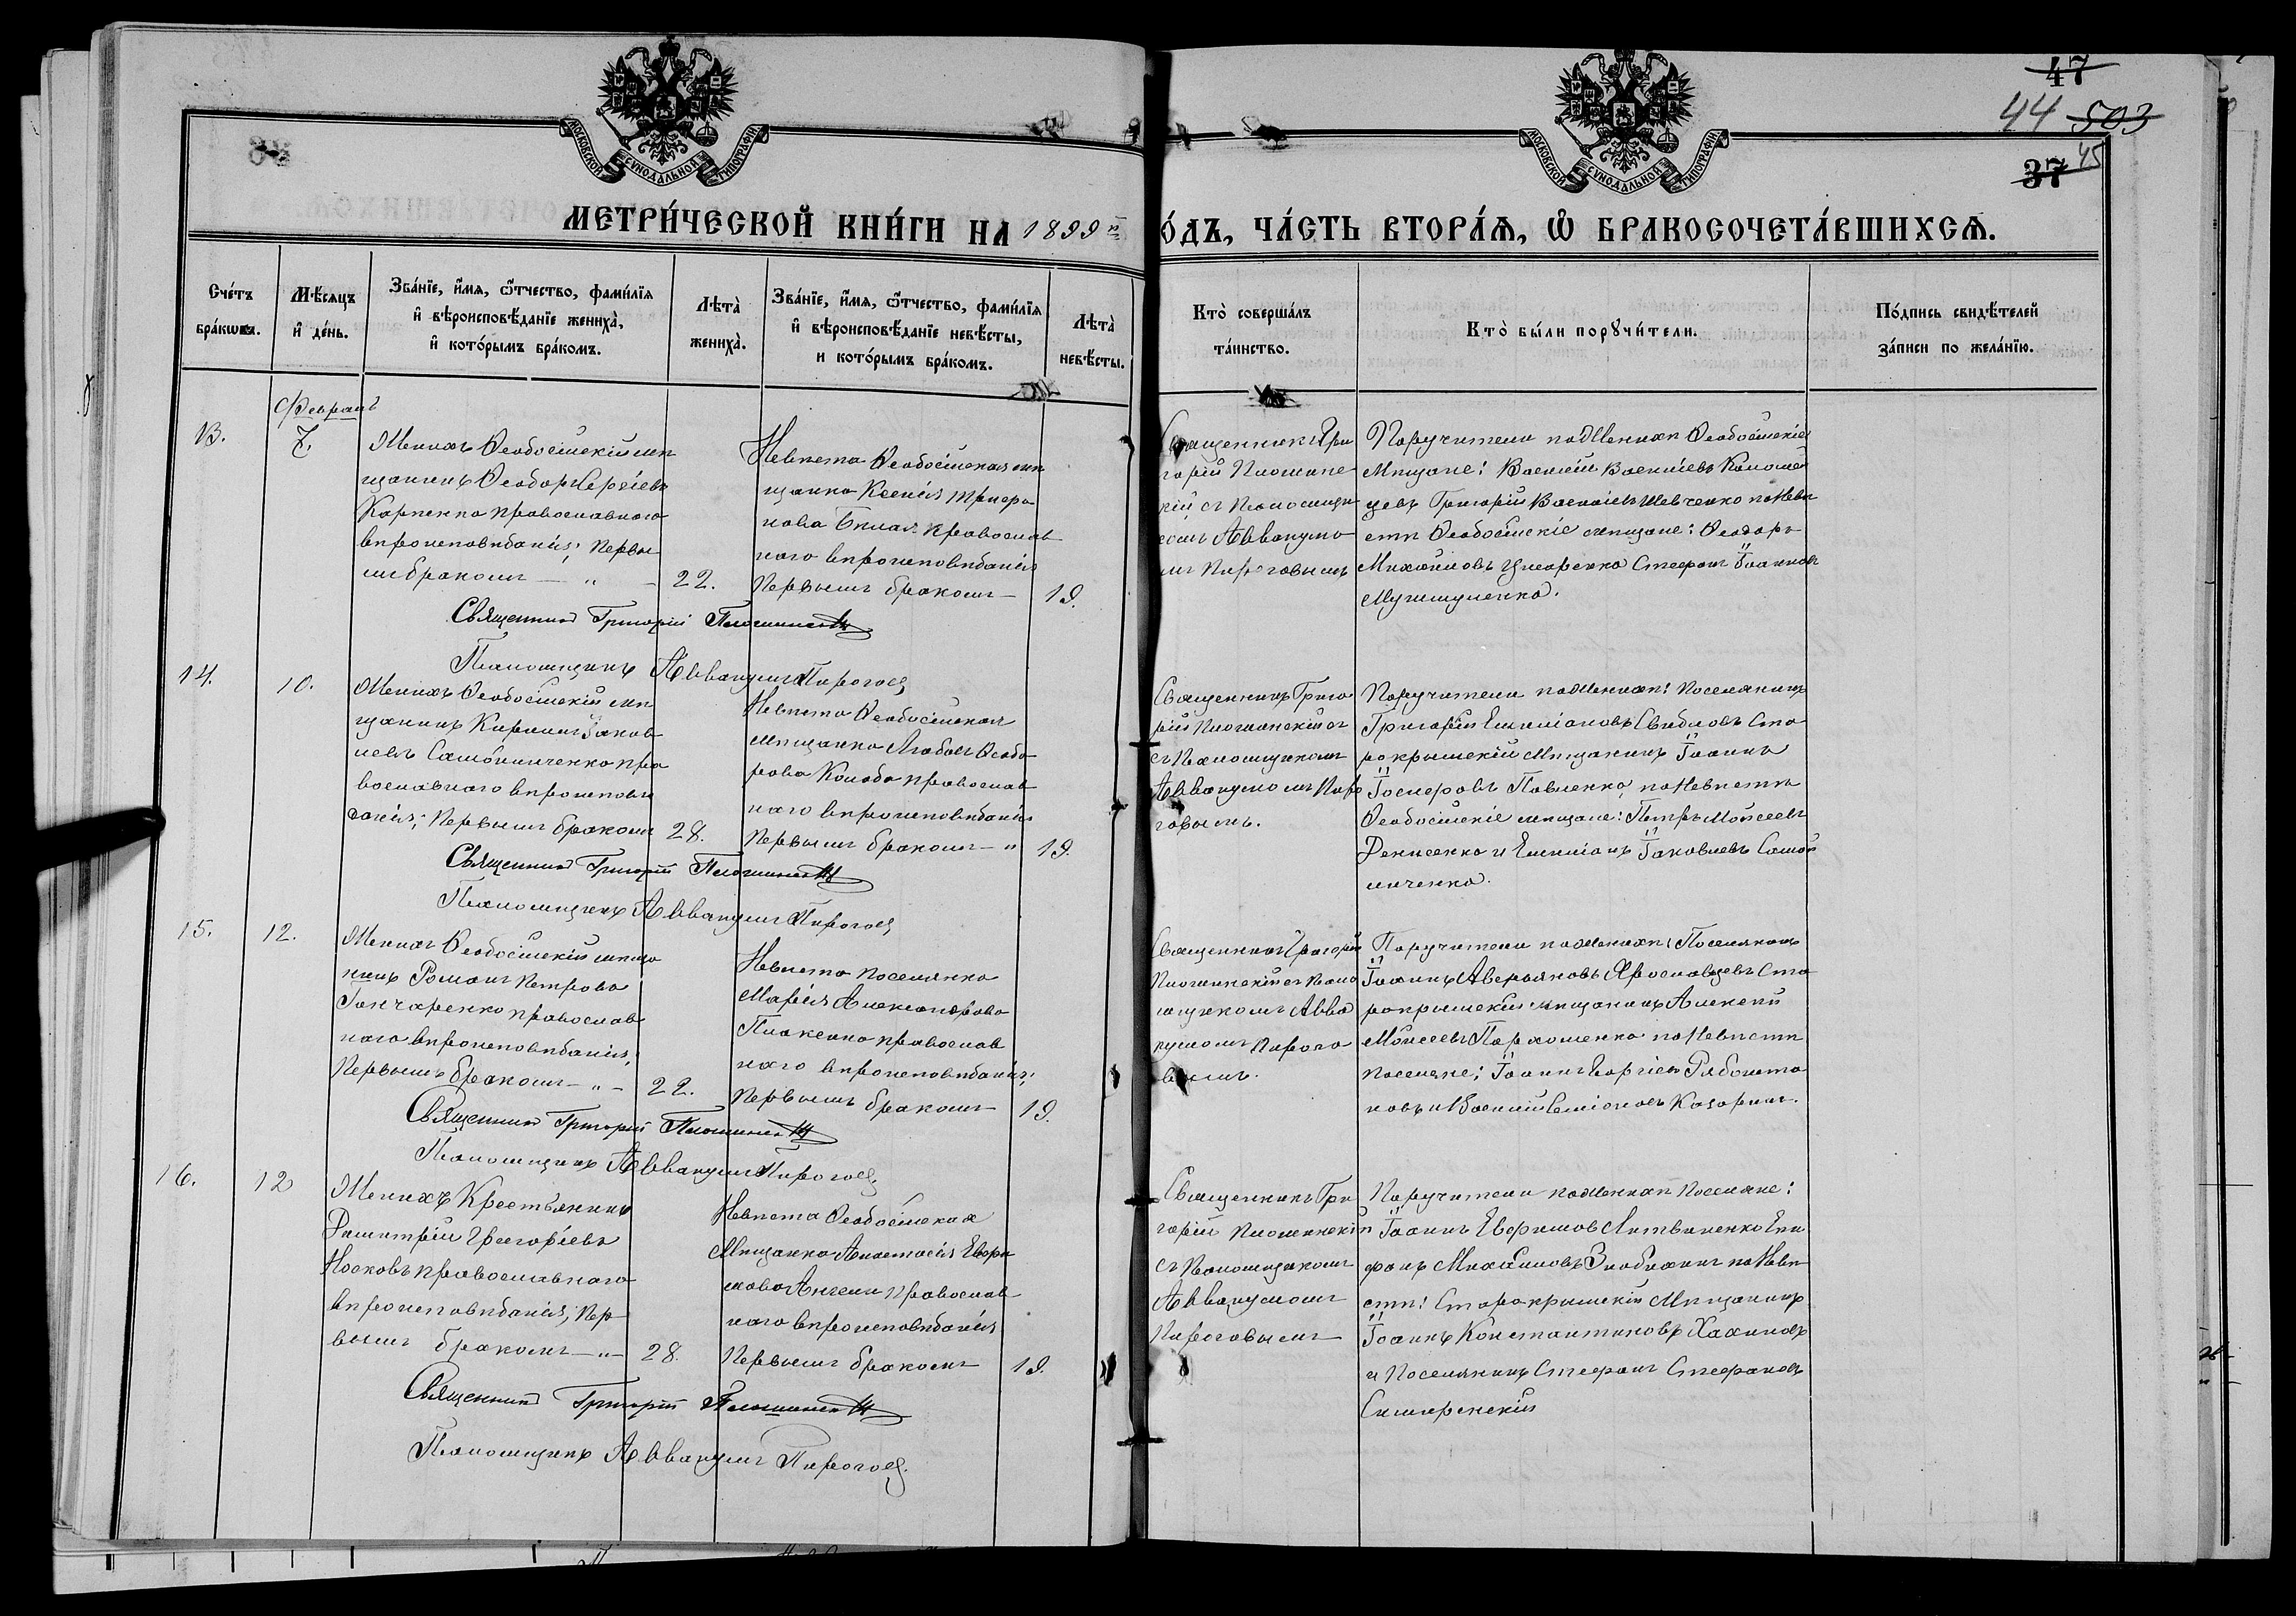 47
44 503
37 45
МОСКОВСКОЙ СѴНОДАЛЬНОЙ ТИПОГРАФІИ
МОСКОВСКОЙ СѴНОДАЛЬНОЙ ТИПОГРАФІИ
МЕТРИ́ЧЕСКОЙ КНИ́ГИ НА 1899й
О́ДЪ, ЧА́СТЬ ВТОРА́Ѧ, Ѡ҆ БРАКОСОЧЕТА́ВШИХСѦ.
Сче́тъ
бра́кѡвъ.
Мѣ́сяцъ
и҆ де́нь.
Зва́нїе, и҆́мѧ, ѻ҆́тчество, фами́лїѧ
и҆ вѣроисповѣ́данїе жениха̀,
и҆ кото́рымъ бра́комъ.
Лѣта̀
жениха̀.
Зва́нїе, и҆́мѧ, ѻ҆́тчество, фами́лїѧ
и҆ вѣроисповѣ́данїе невѣ́сты,
и кото́рымъ бра́комъ.
Лѣта̀
невѣ́сты.
Кто̀ соверша́лъ
та́инство.
Кто̀ бы́ли порꙋчи́тели.
По́дпись свидѣ́телей
за́писи по жела́нїю.
Февраль
13.
7.
Женихъ Ѳеодосійскій мѣ
щанинъ Ѳеодоръ Сергіевъ
Карпенко православнаго
вѣроисповѣданія; Первы
мъ бракомъ — „ —
22.
Невѣста Ѳеодосійская мѣ
щанка Ксенія Трифо
нова Бѣлая православ
наго вѣроисповѣданія
Первымъ бракомъ —
19.
Священникъ Гри
горій Плошинс
кій съ Псаломщи
комъ Аввакумо
мъ Пироговымъ
Поручители по Женихѣ Ѳеодосійскіе
Мѣщане: Василій Васильевъ Коломій
цевъ Григорій Васильевъ Шевченко по Невѣ
стѣ Ѳеодосійскіе мѣщане: Ѳеодоръ
Михайловъ Стефанъ Іоанновъ
Священникъ Григорій Плошинскій
Псаломщикъ Аввакумъ Пироговъ
14.
10.
Женихъ Ѳеодосійскій мѣ
щанинъ Кириллъ Іаков
левъ Самойличенко пра
вославнаго вѣроисповѣ
данія; Первымъ бракомъ
28.
Невѣста Ѳеодосійская
мѣщанка Любовь Ѳеодо
рова Коляда православ
наго вѣроисповѣданія
Первымъ бракомъ — „
19.
Священникъ Григо
рій Плошинскій съ
съ Псаломщикомъ
Аввакумомъ Пиро
говымъ.
Поручители по Женихѣ: Поселянинъ
Григорій Емиліановъ Ста
рокрымскій Мѣщанинъ Іоаннъ
Іосифовъ Павленко, по Невѣстѣ
Ѳеодосійскіе мѣщане: Петръ Моисеевъ
Денисенко и Емиліанъ Іаковлевъ Самой
личенко.
Священникъ Григорій Плошинскій
Псаломщикъ Аввакумъ Пироговъ
15.
12.
Женихъ Ѳеодосійскій мѣща
нинъ Романъ Петровъ
Гончаренко православ
наго вѣроисповѣданія;
Первымъ бракомъ — „ —
22.
Невѣста поселянка
Марія Александрова
православ
наго вѣроисповѣданія;
Первымъ бракомъ
19.
Священникъ Григорій
Плошинскій съ Псало
мщикомъ Авва
кумомъ Пирого
вымъ.
Поручители по Женихѣ: Поселянинъ
Іоаннъ Аверьяновъ Ярославцевъ Ста
рокрымскій мѣщанинъ Алексѣй
Моисеевъ Пархоменко по Невѣстѣ
поселяне: Іоаннъ Георгіевъ
новъ и Василій Семіоновъ Казаринъ.
Священникъ Григорій Плошинскій
Псаломщикъ Аввакумъ Пироговъ
16.
12
Женихъ Крестьянинъ
Димитрій Григоріевъ
Носковъ православнаго
вѣроисповѣданія; Пер
вымъ бракомъ — „ —
28.
Невѣста Ѳеодосійская
Мѣщанка Анастасія Евфи
мова православ
наго вѣроисповѣданія
Первымъ бракомъ
19.
Священникъ Гри
горій Плошинскій
съ Псаломщикомъ
Аввакумомъ
Пироговымъ
Поручители по Женихѣ Поселяне:
Іоаннъ Евфимовъ Литвиненко Епи
фанъ Михайловъ по Невѣ
стѣ: Старокрымскій Мѣщанинъ
Іоаннъ Константиновъ
и Поселянинъ Стефанъ Стефановъ
Симферскій
Священникъ Григорій Плошинскій
Псаломщикъ Аввакумъ Пироговъ.